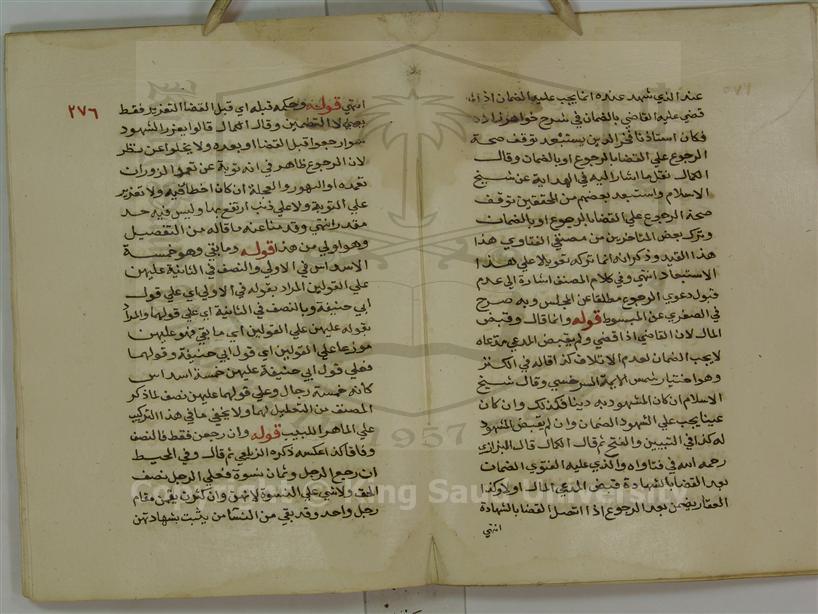 عند الذي شهد عنده انما يجب عليه الضمان اذا
قضي عليه القاضي بالضمان في شرح خواهرزاده
فكان استاذنا فخر الدين يستبعد توقف صحة
الرجوع علي القضا بالرجوع او بالضمان وقال
الكمال نقل ما اشار اليه في الهداية عن شيخ
الاسلام واستبعد بعضهم من المحققين توقف
صحة الرجوع علي القضا بالرجوع او بالضمان
وترك بعض المتاخرين من مصنفي الفتاوي هذا
هذا القيد وذكر انه انما تركه تعويلا علي هذا
الاستبعاد انتهي وفي كلام المصنف اشارة الي عدم
قبول دعوي الرجوع مطلقا عن المجلس وبه صرح
في الصغري عن المبسوط قوله وانما قال وقبض
المال لان القاضي اذا قضي ولم يقبض المدعي مدعاه
لا يجب الضمان لعدم الاتلاف كذا قاله في الكنز
وهو اختيار شمس الايمة السرخسي وقال شيخ
الاسلام ان كان المشهود به دينا فكذلك وان كان
عينا يجب علي الشهود الضمان وان لم يقبض المشهود
له كذا في التبيين والفتح ثم قال الكمال قال البزازي
رحمه الله في فتاواه والذي عليه الفتوي الضمان
بعد القضا بالشهادة قبض المدعي المال اولا وكذا
العقار يضمن بعد الرجوع اذا اتصل القضا بالشهادة
انتهي
٢٧٦
انتهي قوله وحكمه قبله اي قبل القضا التعزير فقط
يعني لا التضمين وقال الكمال قالوا يعزر الشهود
سوا رجعوا قبل القضا او بعده ولا يخلوا عن نظر
لان الرجوع ظاهر في انه توبة عن تعمد الزور ان
تعمده او التهور والعجلة ان كان اخطا فيه ولا تعزير
علي التوبة ولا علي ذنب ارتفع بها وليس فيه حد
مقدر انتهي وقدمنا عنه ما قاله من التفصيل
وهو اولي من هذا قوله وما بقي وهو خمسة
الاسداس في الاولي والنصف في الثانية عليهن
علي القولين المراد بقوله في الاولي اي علي قول
ابي حنيفة وبالنصف في الثانية اي علي قولهما والمراد
بقوله عليهن علي القولين اي ما بقي فهو عليهن
موزعا علي القولين اي قول ابي حنيفة وقولهما
فعلي قول ابي حنيفة عليهن خمسة اسداس
كانه خمسة رجال وعلي قولهما عليهن نصف لما ذكر
المصنف من التعليل لهما ولا يخفي ما في هذا التركيب
علي الماهر اللبيب قوله وان رجعن فقط فالنصف
وفاقا كذا عكسه ذكره الزيلعي ثم قال وفي المحيط
ان رجع الرجل وثمان نسوة فعلي الرجل نصف
الحق ولا شي علي النسوة لانهن وان كثرن يقمن مقام
رجل واحد وقد بقي من النسا من يثبت بشهادتهن
1957
King Saud University